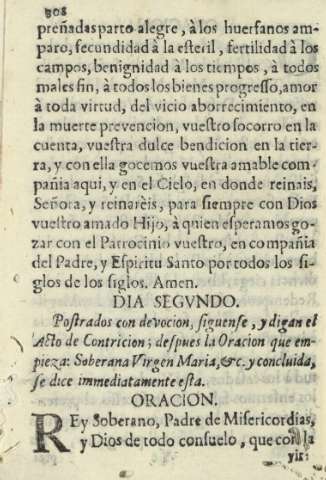 308
preñadas parto alegre, à los huerfanos am-
paro, fecundidad à la esteril, fertilidad à los
campos, benignidad à los tiempos, à todos
males fin, à todos los bienes progresso, amor
à toda virtud, del vicio aborrecimiento, en
la muerte prevencion, vuestro socorro en la
cuenta, vuestra dulce bendicion en la tier-
ra, y con ella gocemos vuestra amable com-
pañia aqui, y en el Cielo, en donde reinais,
Señora, y reinarèis, para siempre con Dios
vuestro amado Hijo, à quien esperamos go-
zar con el Patrocinio vuestro, en compañia
del Padre, y Espiritu Santo por todos los si-
glos de los siglos. Amen.
DIA SEGVNDO.
Postrados con devocion, siguense, y digan el
Acto de Contricion; despues la Oracion que em-
pieza: Soberana Virgen Maria, &c. y concluida,
se dice immediatamente esta.
ORACION.
REy Soberano, Padre de Misericordias,
y Dios de todo consuelo, que con la